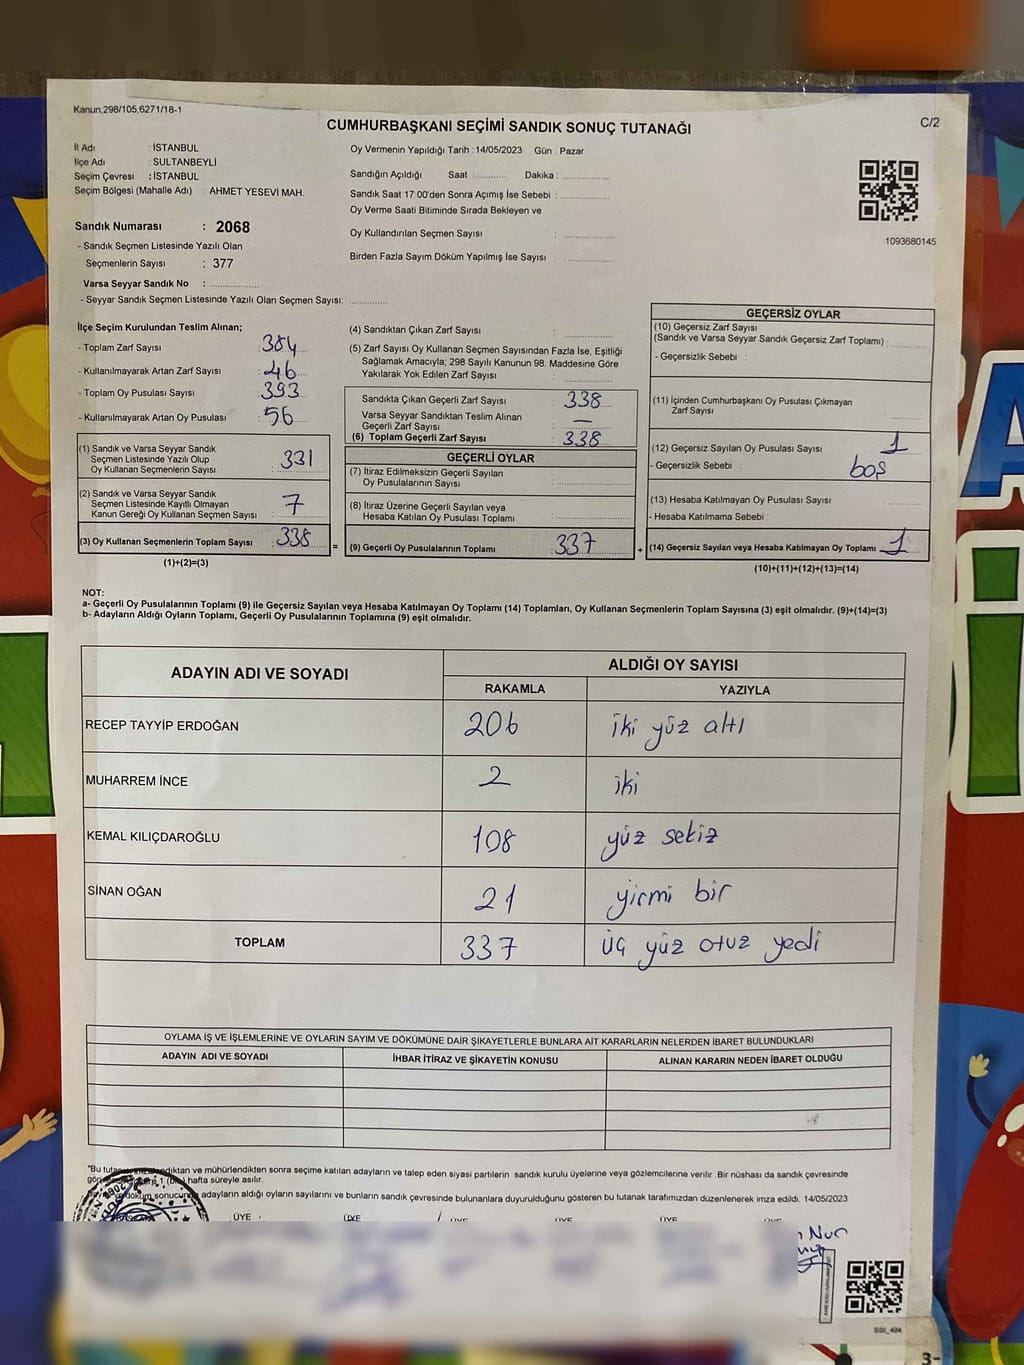 Kanun:298/105,6271/18-1
CUMHURBAŞKANI SEÇİMİ SANDIK SONUÇ TUTANAĞI
C/2
İl Adı : İSTANBUL
İlçe Adı : SULTANBEYLİ
Seçim Çevresi : İSTANBUL
Seçim Bölgesi (Mahalle Adı) : AHMET YESEVİ MAH.
Oy Vermenin Yapıldığı Tarih : 14/05/2023 Gün : Pazar
Sandığın Açıldığı Saat ............ Dakika : ............
Sandık Saat 17:00'den Sonra Açımış İse Sebebi : ............
Oy Verme Saati Bitiminde Sırada Bekleyen ve
Oy Kullandırılan Seçmen Sayısı : ............
Birden Fazla Sayım Döküm Yapılmış İse Sayısı : ............
1093680145
Sandık Numarası : 2068
- Sandık Seçmen Listesinde Yazılı Olan
Seçmenlerin Sayısı : 377
Varsa Seyyar Sandık No : ............
- Seyyar Sandık Seçmen Listesinde Yazılı Olan Seçmen Sayısı: ............
İlçe Seçim Kurulundan Teslim Alınan;
- Toplam Zarf Sayısı : 384
- Kullanılmayarak Artan Zarf Sayısı : 46
- Toplam Oy Pusulası Sayısı : 393
- Kullanılmayarak Artan Oy Pusulası : 56
(1) Sandık ve Varsa Seyyar Sandık
Seçmen Listesinde Yazılı Olup
Oy Kullanan Seçmenlerin Sayısı : 331
(2) Sandık ve Varsa Seyyar Sandık
Seçmen Listesinde Kayıtlı Olmayan
Kanun Gereği Oy Kullanan Seçmen Sayısı : 7
(3) Oy Kullanan Seçmenlerin Toplam Sayısı : 338
(1)+(2)=(3)
(4) Sandıktan Çıkan Zarf Sayısı : ............
(5) Zarf Sayısı Oy Kullanan Seçmen Sayısından Fazla İse, Eşitliği
Sağlamak Amacıyla; 298 Sayılı Kanunun 98. Maddesine Göre
Yakılarak Yok Edilen Zarf Sayısı : ............
Sandıkta Çıkan Geçerli Zarf Sayısı : 338
Varsa Seyyar Sandıktan Teslim Alınan
Geçerli Zarf Sayısı : —
(6) Toplam Geçerli Zarf Sayısı : 338
GEÇERLİ OYLAR
(7) İtiraz Edilmeksizin Geçerli Sayılan
Oy Pusulalarının Sayısı : ............
(8) İtiraz Üzerine Geçerli Sayılan veya
Hesaba Katılan Oy Pusulası Toplamı : ............
= (9) Geçerli Oy Pusulalarının Toplamı : 337
GEÇERSİZ OYLAR
(10) Geçersiz Zarf Sayısı
(Sandık ve Varsa Seyyar Sandık Geçersiz Zarf Toplamı) :
- Geçersizlik Sebebi :
(11) İçinden Cumhurbaşkanı Oy Pusulası Çıkmayan
Zarf Sayısı :
(12) Geçersiz Sayılan Oy Pusulası Sayısı : 1
- Geçersizlik Sebebi : boş
(13) Hesaba Katılmayan Oy Pusulası Sayısı
- Hesaba Katılmama Sebebi :
+ (14) Geçersiz Sayılan veya Hesaba Katılmayan Oy Toplamı : 1
(10)+(11)+(12)+(13)=(14)
NOT:
a- Geçerli Oy Pusulalarının Toplamı (9) ile Geçersiz Sayılan veya Hesaba Katılmayan Oy Toplamı (14) Toplamları, Oy Kullanan Seçmenlerin Toplam Sayısına (3) eşit olmalıdır. (9)+(14)=(3)
b- Adayların Aldığı Oyların Toplamı, Geçerli Oy Pusulalarının Toplamına (9) eşit olmalıdır.
ADAYIN ADI VE SOYADI ALDIĞI OY SAYISI
RAKAMLA YAZIYLA
RECEP TAYYİP ERDOĞAN 206 iki yüz altı
MUHARREM İNCE 2 iki
KEMAL KILIÇDAROĞLU 108 yüz sekiz
SİNAN OĞAN 21 yirmi bir
TOPLAM 337 üç yüz otuz yedi
OYLAMA İŞ VE İŞLEMLERİNE VE OYLARIN SAYIM VE DÖKÜMÜNE DAİR ŞİKAYETLERLE BUNLARA AİT KARARLARIN NELERDEN İBARET BULUNDUKLARI
ADAYIN ADI VE SOYADI İHBAR İTİRAZ VE ŞİKAYETİN KONUSU ALINAN KARARIN NEDEN İBARET OLDUĞU
*Bu ve mühürlendikten sonra seçime katılan adayların ve talep eden siyasi partilerin sandık kurulu üyelerine veya gözlemcilerine verilir. Bir nüshası da sandık çevresinde
1 hafta süreyle asılır.
döküm sonucunda adayların aldığı oyların sayılarını ve bunların sandık çevresinde bulunanlara duyurulduğunu gösteren bu tutanak tarafımızdan düzenlenerek imza edildi. 14/05/2023
ÜYE ÜYE ÜYE ÜYE ÜYE
Nur
3-